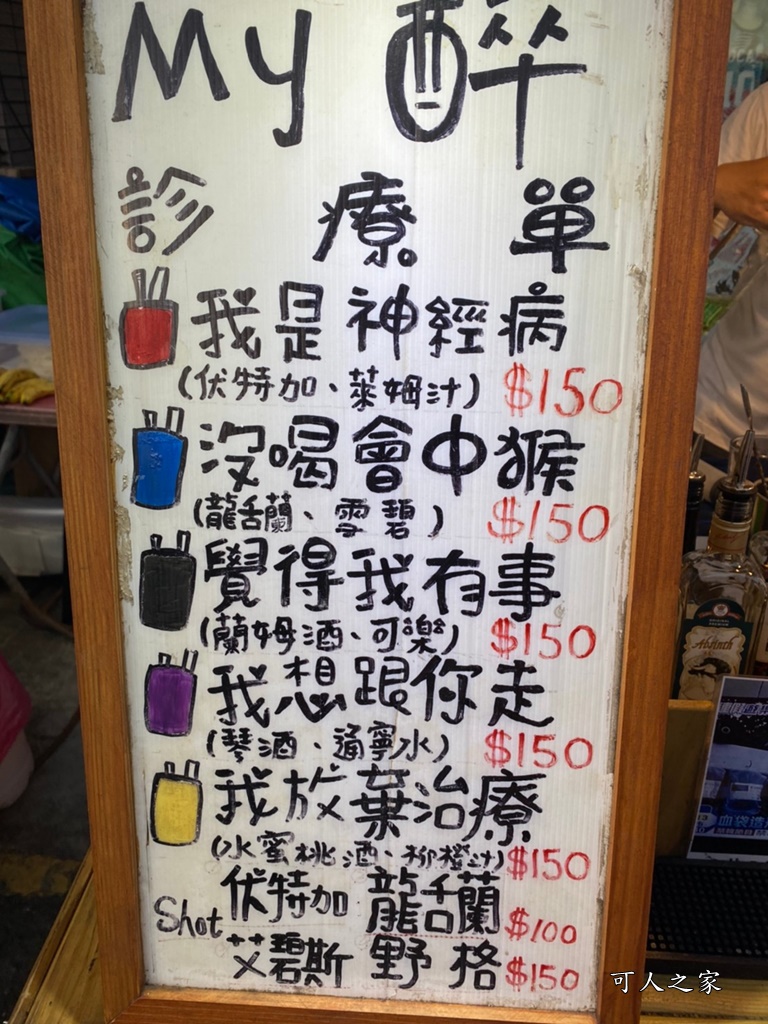 My 醉
診療單
我是神經病
(伏特加、萊姆汁) $150
沒喝會中猴
(龍舌蘭、雪碧) $150
覺得我有事
(蘭姆酒、可樂) $150
我想跟你走
(琴酒、通寧水) $150
我放棄治療
(水蜜桃酒、柳橙汁) $150
Shot 伏特加 龍舌蘭 $100
艾碧斯 野格 $150
Absinth
血袋造
可人之家